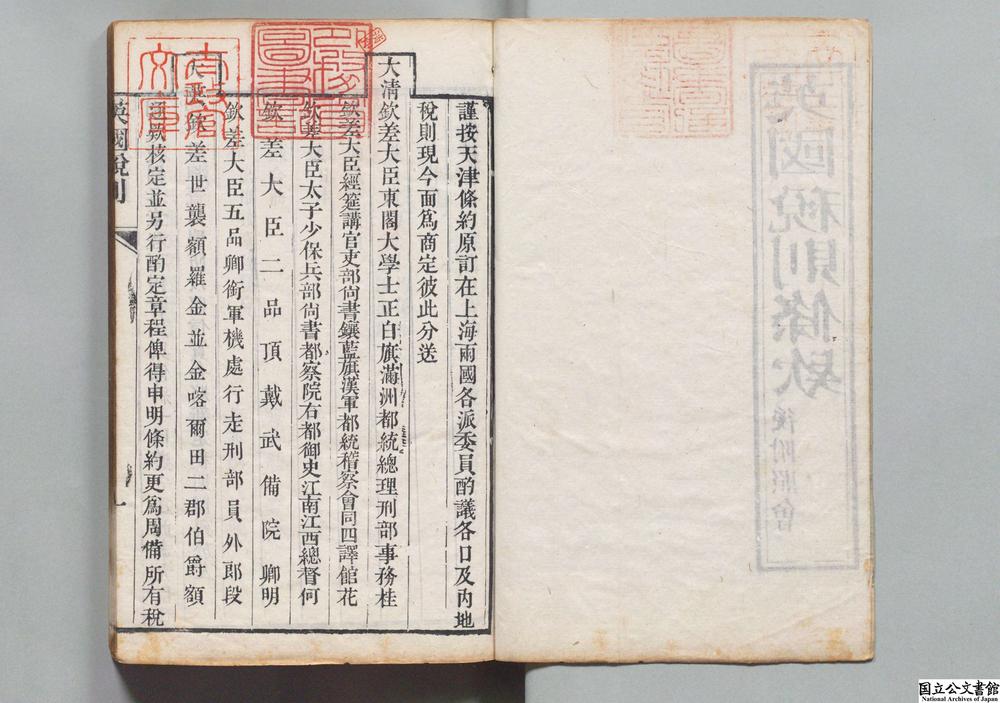 謹按天津條約原訂在上海兩國各派委員酌議各口及内地
稅則現今面爲商定彼此分送
大清欽差大臣東閣大學士正白旗滿洲都統總理刑部事務桂
欽差大臣經筵講官吏部尙書鑲藍旗漢軍都統稽察會同四譯館花
欽差大臣太子少保兵部尙書都察院右都御史江南江西總督何
欽差大臣二品頂戴武備院卿明
欽差大臣五品卿銜軍機處行走刑部員外郎段
大英欽差世襲額羅金並金喀爾田二郡伯爵額
逐款核定並另行酌定章程俾得申明條約更爲周備所有稅
英國稅則
一
英國稅則條款
後附照會
太政官文庫
国立公文書館
National Archives of Japan